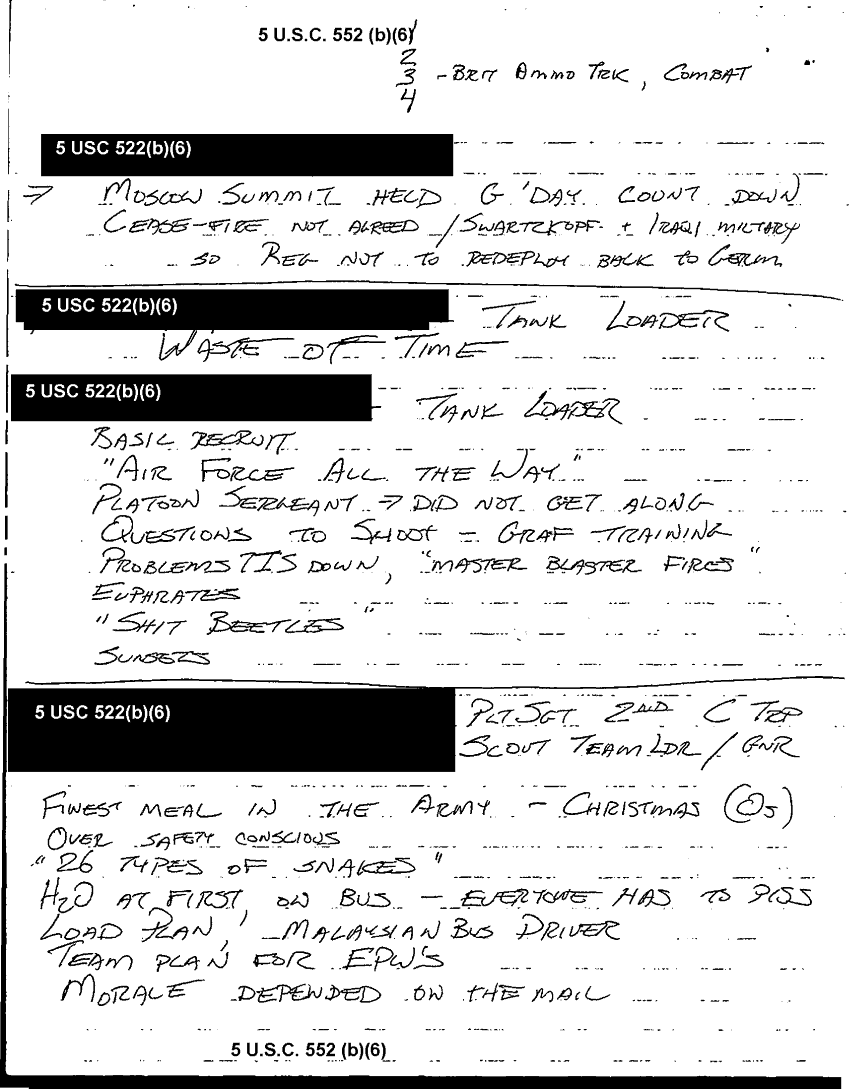 5 U.S.C. 552 (b)(6)
2
3 - BRIT AMMO TRK, COMBAT
4
5 USC 522(b)(6)
→ MOSCOW SUMMIT HELD G'DAY COUNT DOWN
CEASE-FIRE NOT AGREED / SWARTZKOPF + IRAQI MILTARY
SO REG NOT TO REDEPLOY BACK TO GERM
5 USC 522(b)(6) TANK LOADER
WASTE OF TIME
5 USC 522(b)(6) - TANK LOADER
BASIC RECRUIT
"AIR FORCE ALL THE WAY"
PLATOON SERGEANT → DID NOT GET ALONG
QUESTIONS TO SHOOT - GRAF TRAINING
PROBLEMS TIS DOWN, "MASTER BLASTER FIRES"
EUPHRATES
"SHIT BEETLES"
SUNSETS
5 USC 522(b)(6) PLT SGT 2ND C TRP
SCOUT TEAM LDR / GNR
FINEST MEAL IN THE ARMY - CHRISTMAS (OJ)
OVER SAFETY CONSCIOUS
"26 TYPES OF SNAKES"
H2O AT FIRST, ON BUS - EVERYONE HAS TO PISS
LOAD PLAN, MALAYSIAN BUS DRIVER
TEAM PLAN FOR EPW'S
MORALE DEPENDED ON THE MAIL
5 U.S.C. 552 (b)(6)